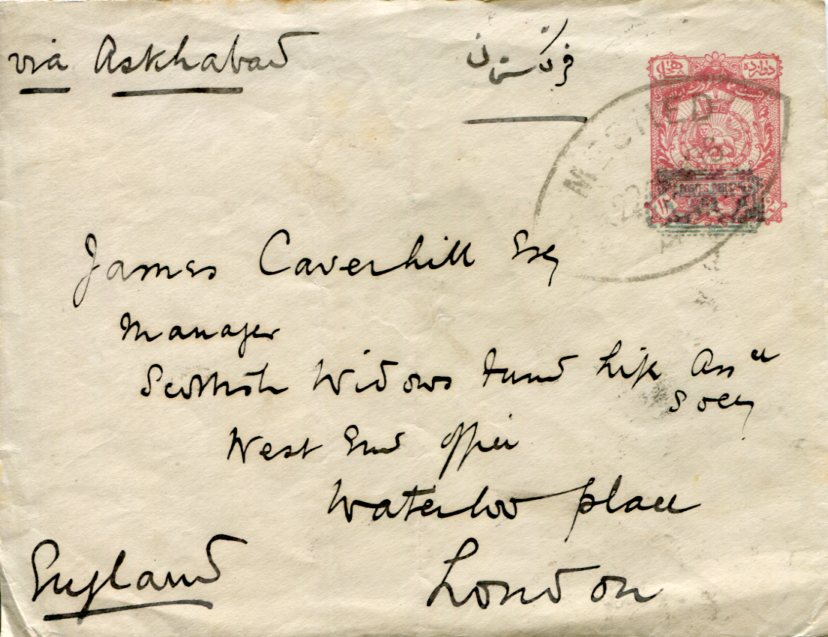 via Askhabad
فرنگستان
MESHED
22
James Caverhill Esq
Manager
Scottish Widows Fund Life Assce
Socy
West End Office
Waterloo Place
London
England